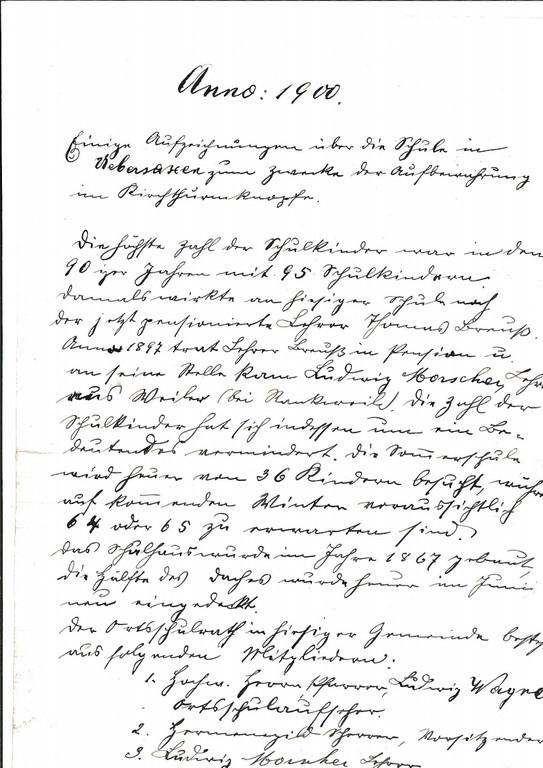 Anno: 1900.
Einige Aufzeichnungen über die Schule in
Uebersaxen zum zwecke der Aufbewahrung
im Kirchthurmknopfe.
Die höchste Zahl der Schulkinder war in den
90 iger Jahren mit 95 Schulkindern.
Damals wirkte an hiesiger Schule noch
der jetzt pensionierte Lehrer Thomas Breuß.
Anno 1897 trat Lehrer Breuß in Pension u.
an seine Stelle kam Ludwig Morscher, Lehr
aus Weiler (bei Rankweil). Die Zahl der
Schulkinder hat sich indessen um ein Be-
deutendes vermindert. Die Sommerschule
wird heuer von 36 Kindern besucht, währe
auf kommenden Winter voraussichtlich
64 oder 65 zu erwarten sind.
Das Schulhaus wurde im Jahre 1867 gebaut,
die Hälfte des Daches wurde heuer im Juni
neu eingedeckt.
Der Ortsschulrath in hiesiger Gemeinde beste
aus folgenden Mitgliedern:
1. Hochw. Herrn Pfarrer, Ludwig Wagne
Ortsschulaufseher.
2. Hermenegild Scherrer, Vorsitzender
3. Ludwig Morscher Lehrer